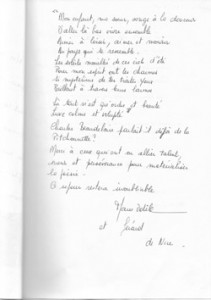 "Mon enfant, ma soeur, songe à la douceur
D'aller là bas vivre ensemble
Aimer à loisir, aimer et mourir
Au pays qui te ressemble
Les soleils mouillés de ces ciels
Pour mon esprit ont les charmes
Si mystérieux de tes traîtres yeux
Brillant à travers leurs larmes
Là tout n'est qu'ordre et beauté
Luxe calme et volupté"
Charles Baudelaire parlait il déjà de la
Merci à ceux qui ont su allier talent,
et persévérance pour matérialiser
la poésie.
Ce séjour restera inoubliable
et Gérard
de Nice